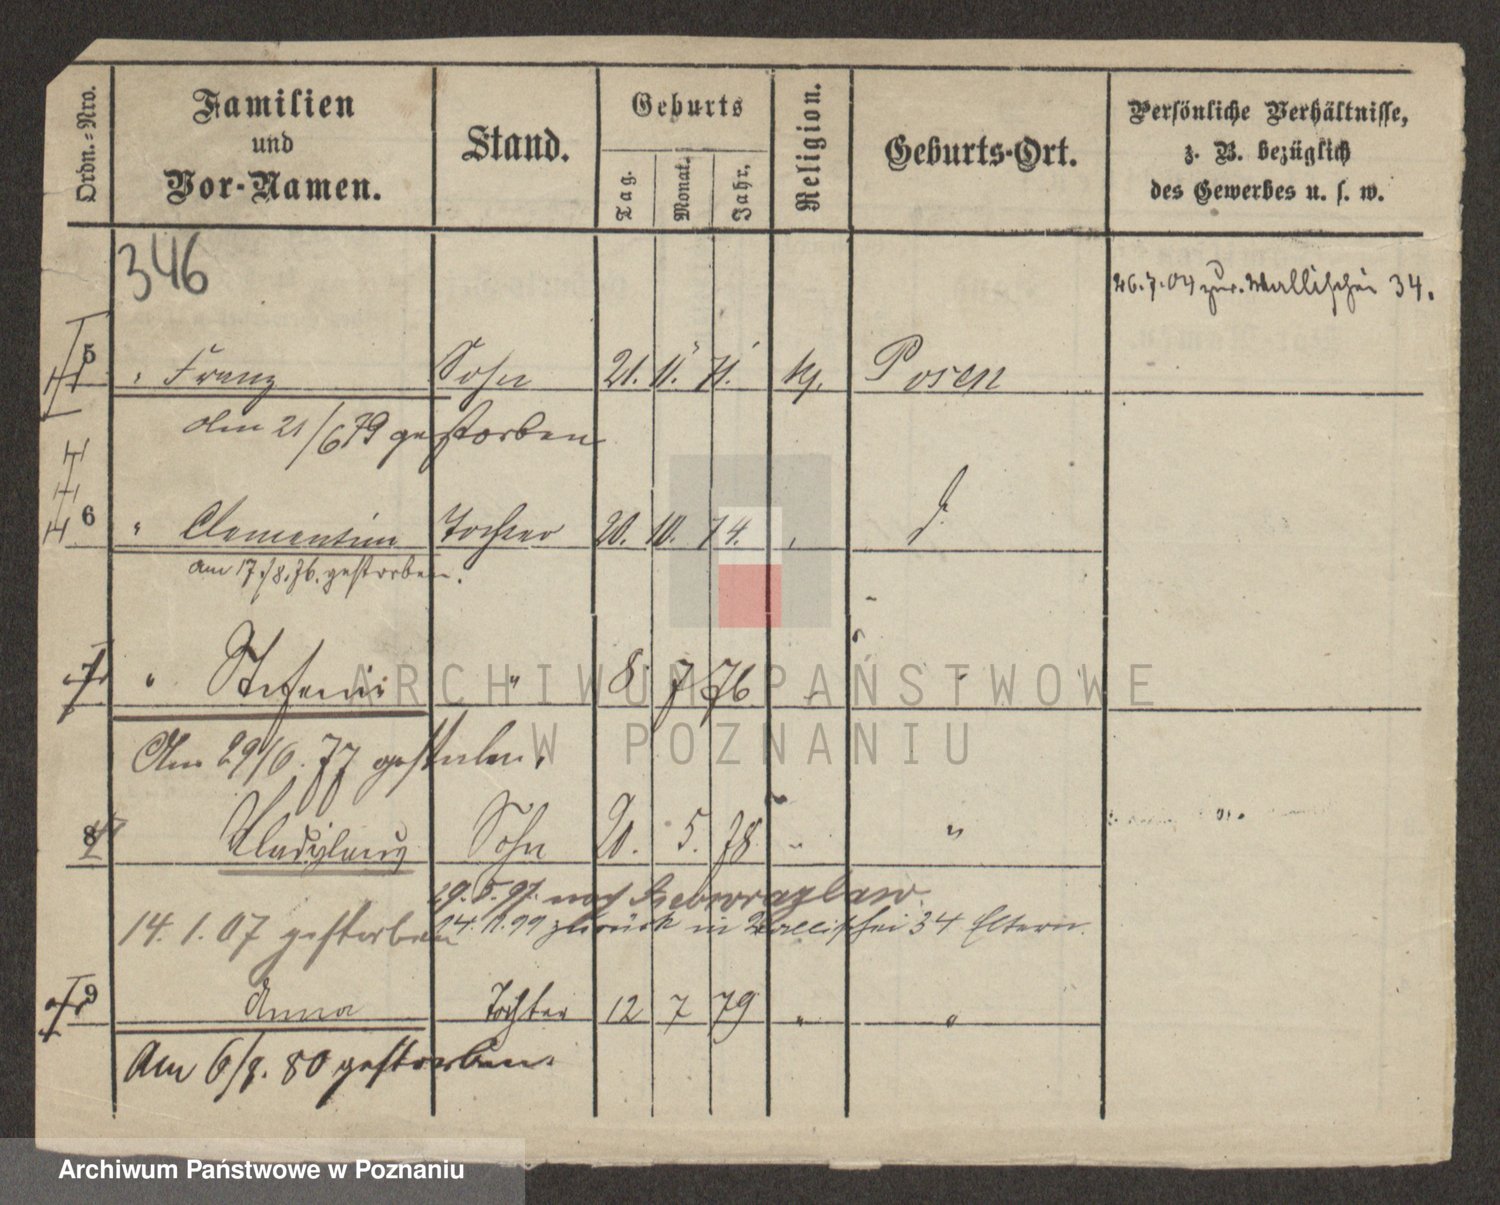 Ordn.-Nro.
Familien und Vor-Namen.
Stand.
Geburts
Tag.
Monat.
Jahr.
Religion.
Geburts-Ort.
Persönliche Verhältnisse, z. B. bezüglich des Gewerbes u. s. w.
346
26.7.04 zur. Wallischei 34.
5 " Franz Sohn 21. 11. 71. kg. Posen
den 21/6 79 gestorben
6 " Clementine Tochter 20. 10. 74. " d.
am 17./8. 76. gestorben.
7 " Stefani " 8 7 76 " "
Am 29/6. 77 gestorben.
8 Wladislaus Sohn 20. 5. 78 " "
29.5.97. nach
14.1.07 gestorben
24. 11. 99 zurück in Wallischei 34 Eltern.
9 Anna Tochter 12 7 79 " "
Am 6/8. 80 gestorben.
ARCHIWUM PAŃSTWOWE
W POZNANIU
Archiwum Państwowe w Poznaniu